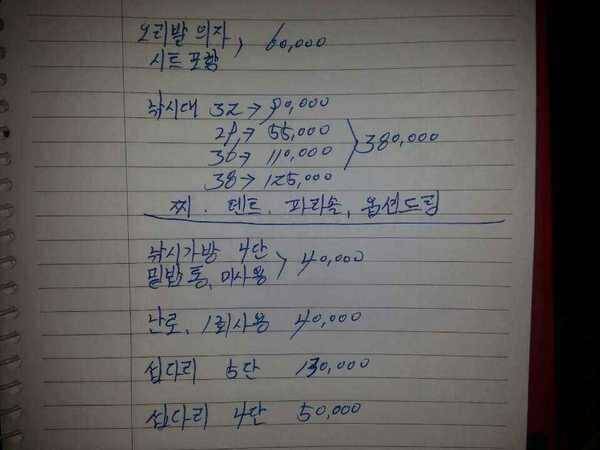 오리발 의자, 60,000
시트포함
낚시대 32→90,000
29→55,000
36→110,000 380,000
38→125,000
찌. 텐트. 파라솔, 옵션드림
낚시가방 4단 40,000
밑밥통, 미사용
난로, 1회사용 40,000
섭다리 5단 130,000
섭다리 4단 50,000